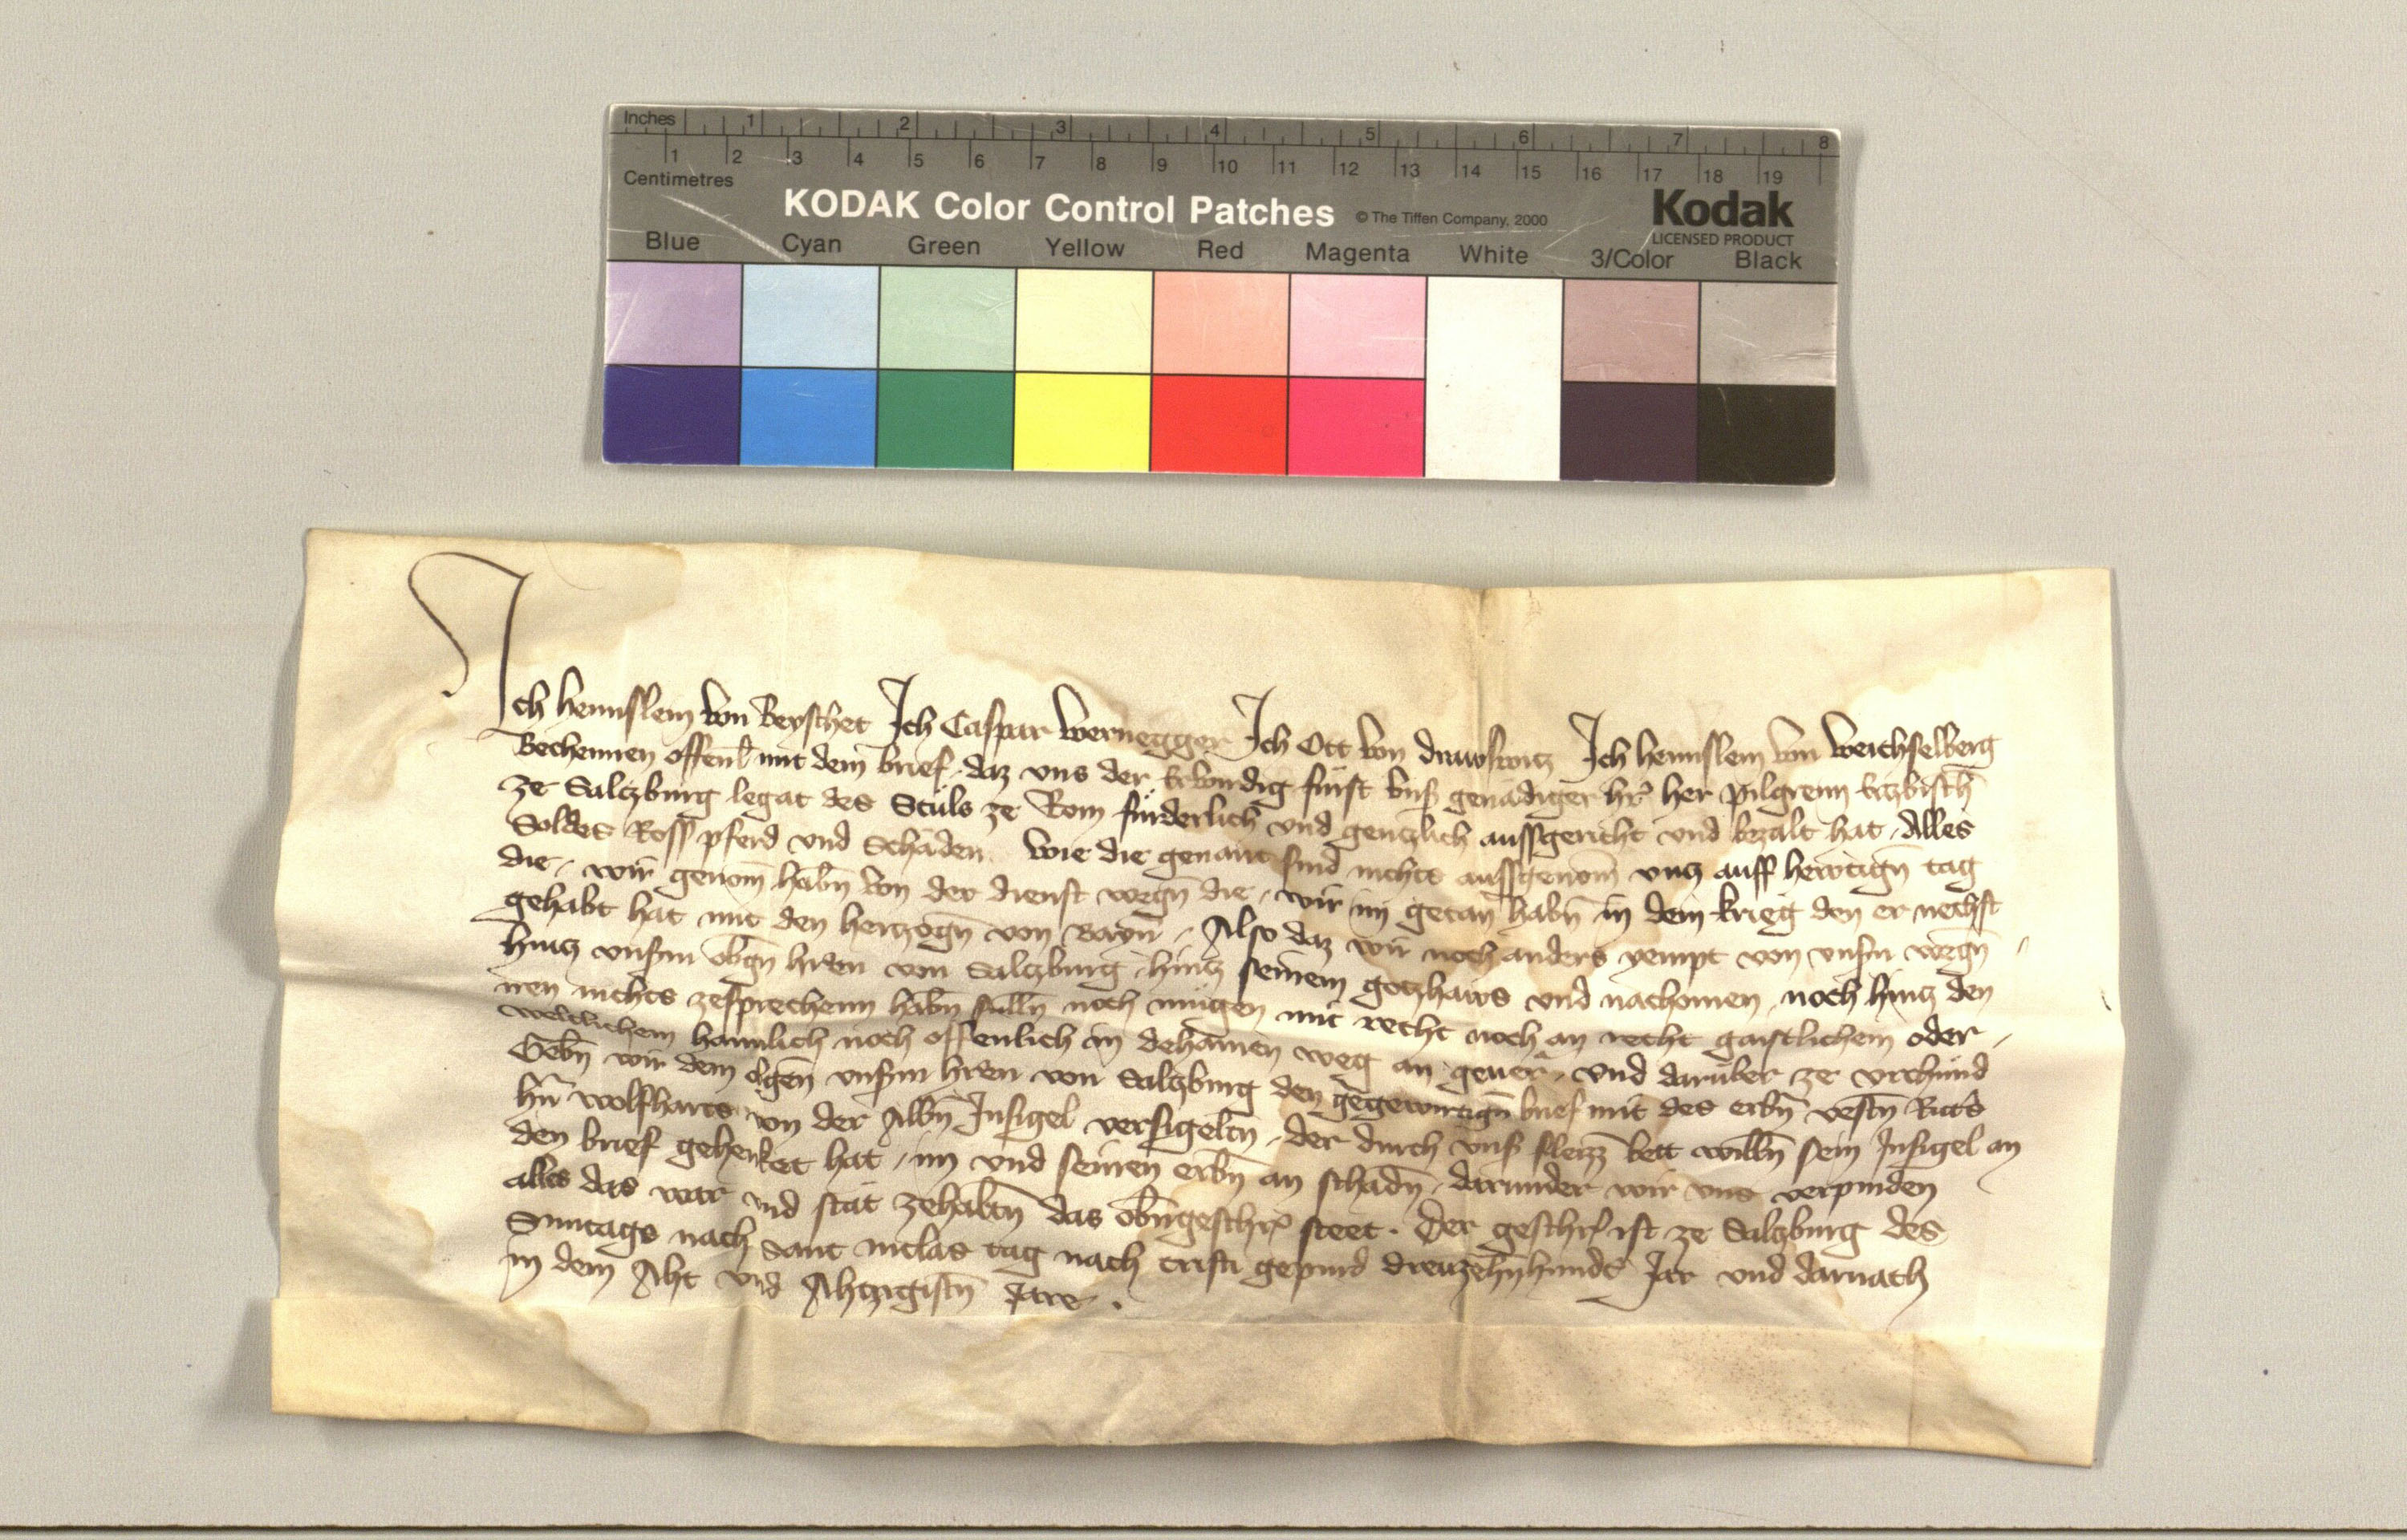 Inches 1 2 3 4 5 6 7 8
1 2 3 4 5 6 7 8 9 10 11 12 13 14 15 16 17 18 19
Centimetres
KODAK Color Control Patches © The Tiffen Company, 2000 Kodak
LICENSED PRODUCT
Blue Cyan Green Yellow Red Magenta White 3/Color Black
Ich hennslein von Ich Caspar wernegger Ich Ott von Ich hennslein von weichselberg
Bechennen offenl mit dem brief, daz vns der Erwirdig fürst vnß genädiger hr̄ her Pilgreim Ertzbisch
ze Saltzburg legat des Stůls ze Rom fürderlich vnd gentzlich aussgericht vnd bezalt hat, Alles
Soldes Ross pferd vnd Schäden wie die genant sind nichts aussgenom̄ vntz auff hewtign̄ tag
die, wir genom̄ habn̄ von der dienst wegn̄ die, wir im getan habn̄ in dem krieg den er nechst
gehabt hat mit den hertzogn̄ von Bayrn̄, Also daz wir noch anders yempt von vnsrn wegn̄,
hintz vnßm obgn̄ hren von Saltzburg, hintz seinem gotzhaws vnd nachomen, noch hintz den
iren nichts zesprechenn habn̄ sulln̄ noch mügen mit recht noch an recht gaistlichem oder,
weltlichem haimlich noch offenlich in dehainen weg an geuer̄, vnd darüber ze vrchünd
Gebn̄ wir dem obgen̄ vnßm hren von Saltzburg den gegewürtign̄ brief mit des erbn̄ vestn̄ Ritt's
hn̄ wolfharts von der Albn̄ Insigel versigeltn̄, der durch vnß fleizz bett willn̄ sein Insigel an
den brief gehenket hat, im vnd seinen erbn̄ an schadn̄, darunder wir vns verpinden
alles das war vnd stät zehabn̄ das obn̄geschr steet. Der geschr ist ze Saltzburg des
Suntags nach Sant niclas tag nach cristi gepurd dreuzehnhundt Jar vnd darnach
in dem Aht vnd Ahtzigistn̄ Jare.